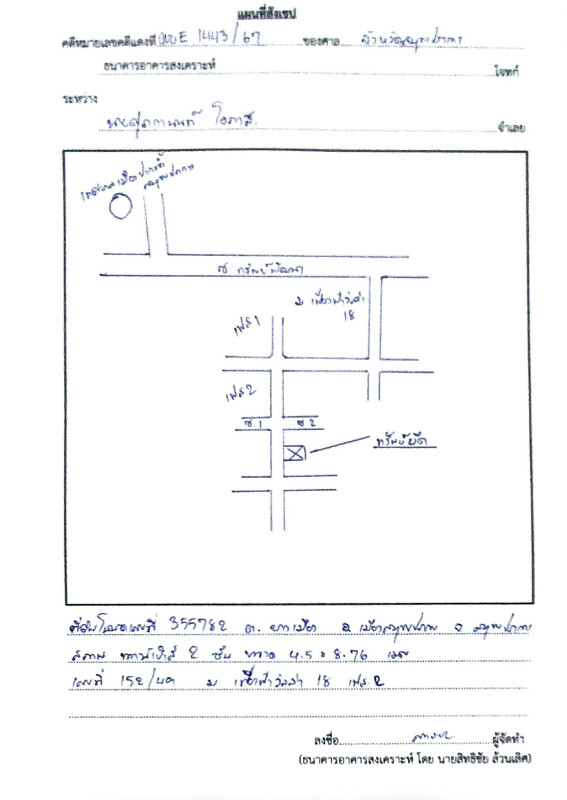 แผนที่สังเขป
คดีหมายเลขคดีแดงที่ ผบE 1443/67 ของศาล จังหวัดสมุทรปราการ
ธนาคารอาคารสงเคราะห์ โจทก์
ระหว่าง
นายศุภกานนท์ โอภาส จำเลย
สมุทรปราการ
ซ ทรัพย์พัฒนา
ม เฟื่องฟ้าวิลล่า
18
เฟส 1
เฟส 2
ซ.1 ซ 2
ทรัพย์ยึด
ที่ดินโฉนดเลขที่ 355782 ต. บางเมือง อ เมืองสมุทรปราการ จ สมุทรปราการ
2 ชั้น ขนาด 4.5 x 8.76 เมตร
เลขที่ 152/49 ม เฟื่องฟ้าวิลล่า 18 เฟส 2
ลงชื่อ ผู้จัดทำ
(ธนาคารอาคารสงเคราะห์ โดย นายสิทธิชัย ล้วนเลิศ)